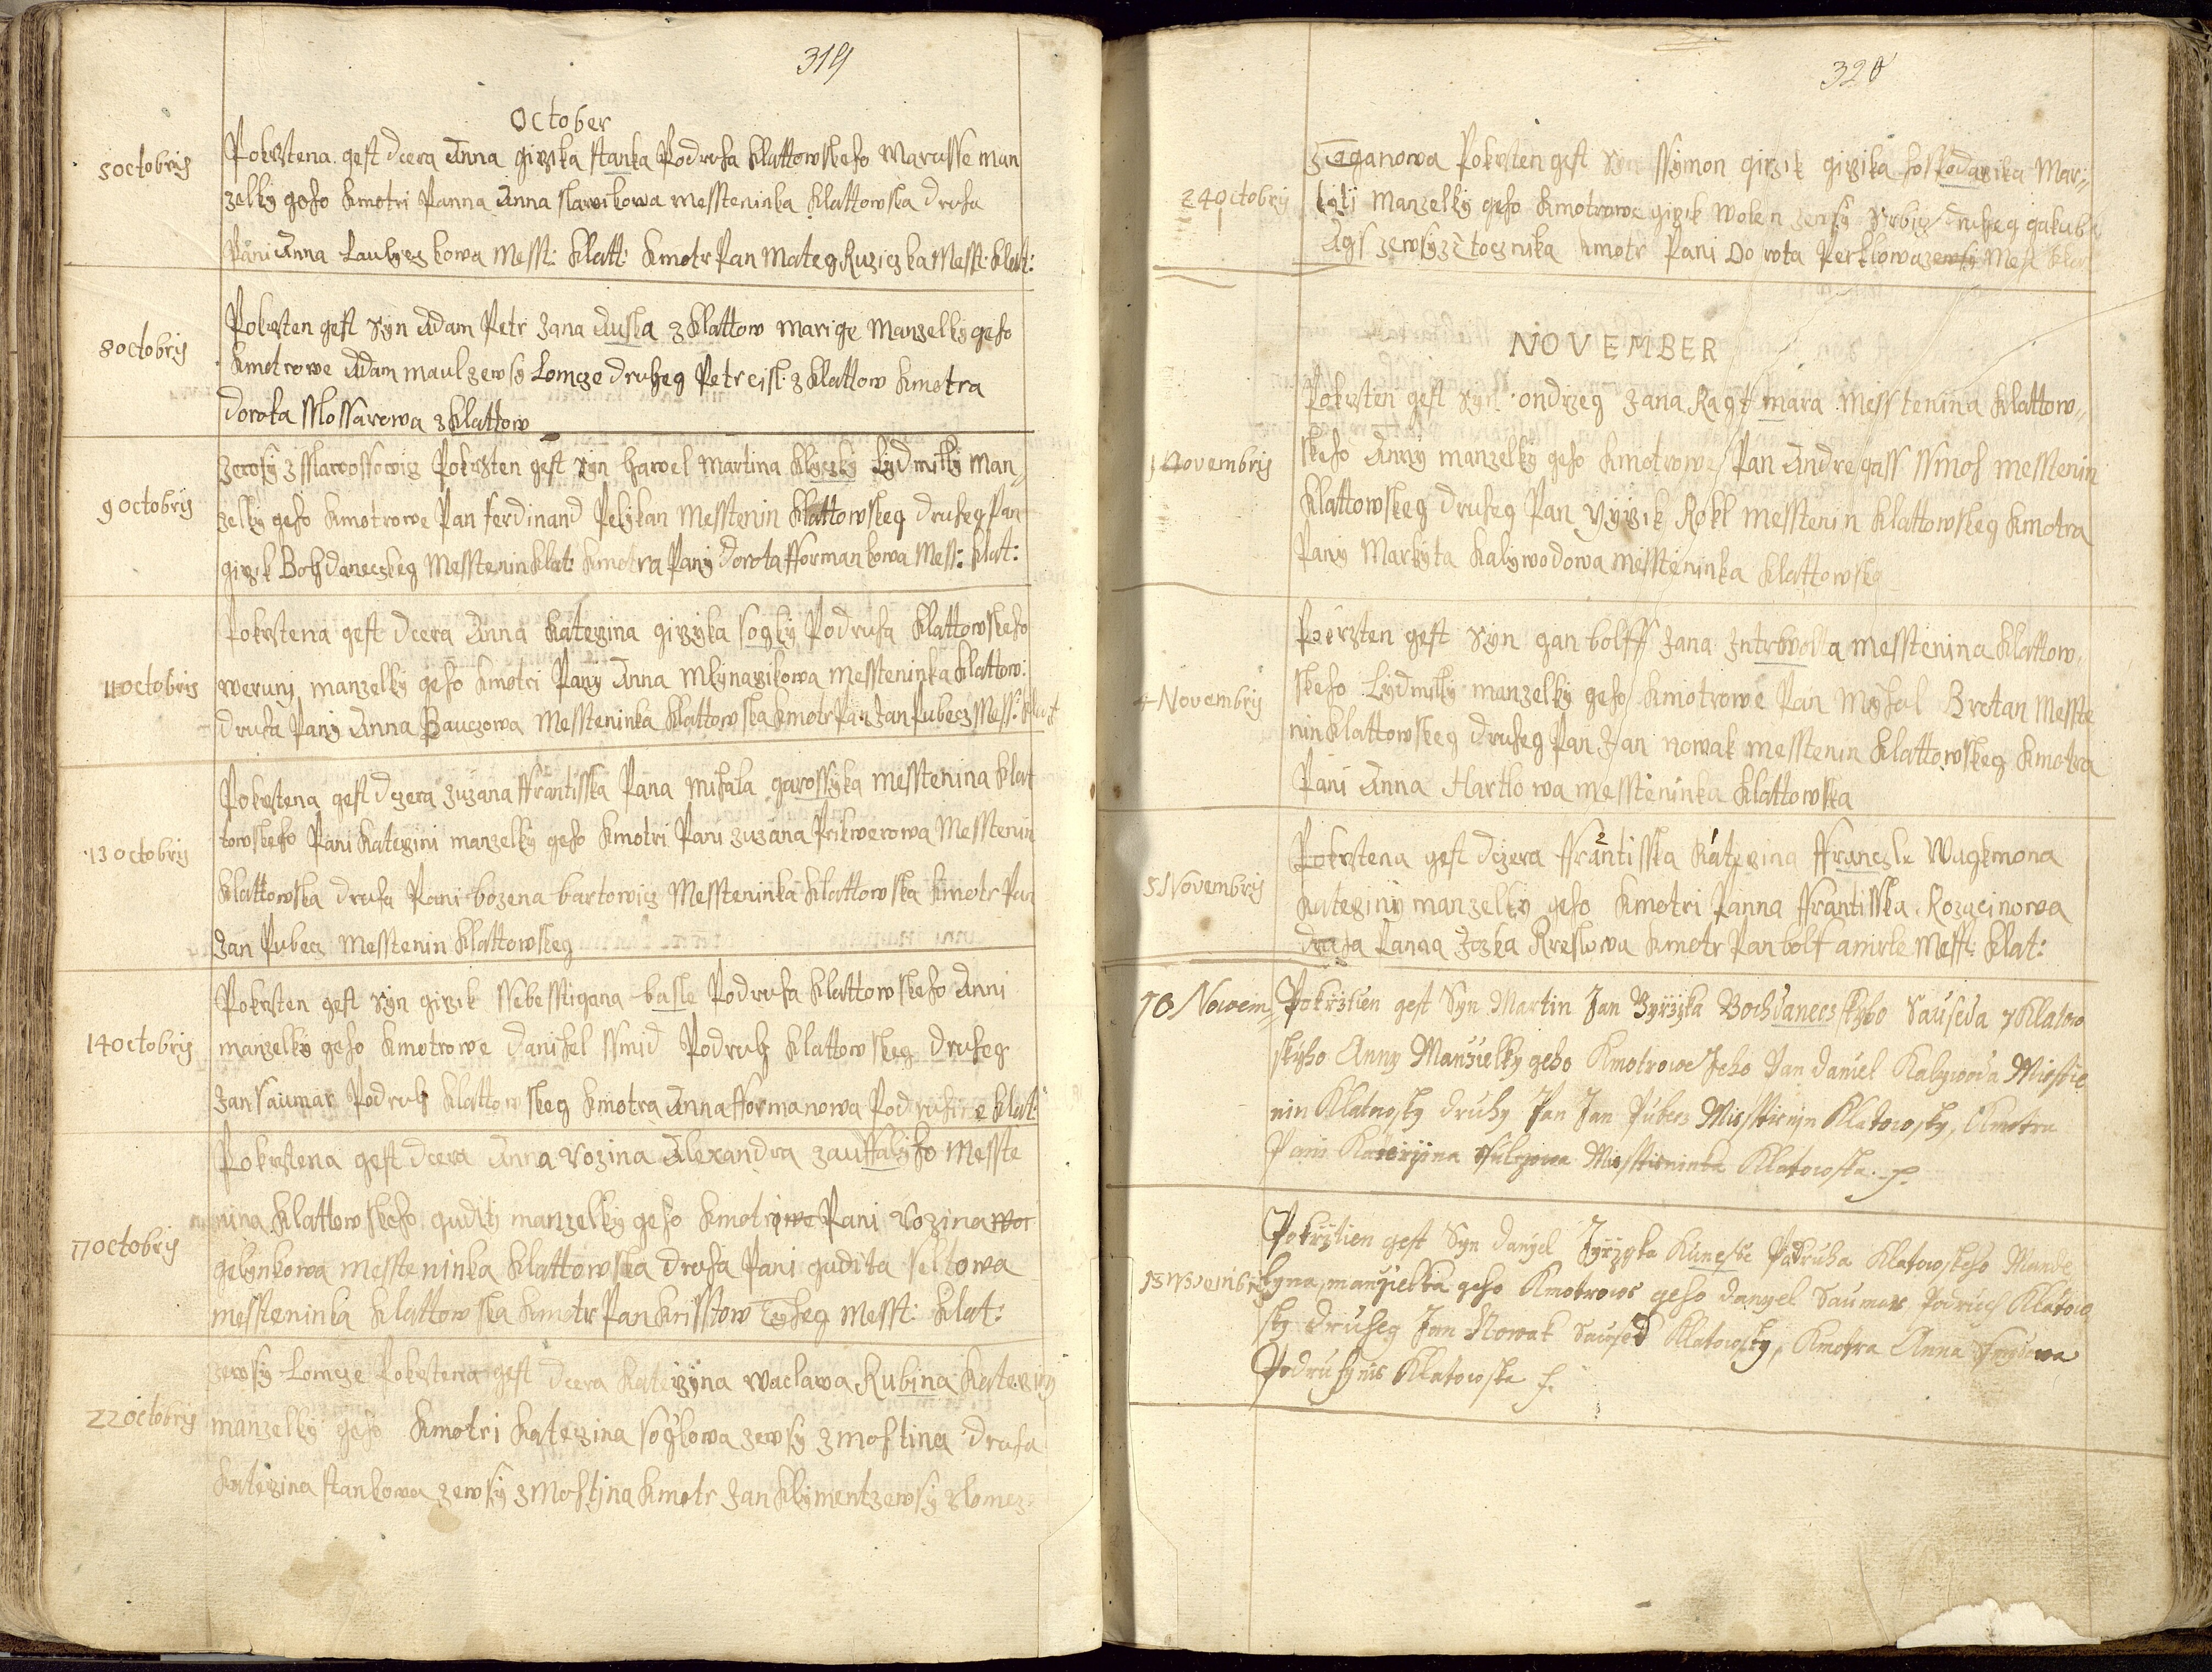 319
October
5 octobris
Pokrztena gest dcera Anna girzika stanka Podruha klattowskeho Marusse man
zelky geho kmotri Panna Anna slawikowa messteninka klattowska druha
Pani Anna Messt: klatt: kmotr Pan Mateg Ruziczka Messt: klat:
8 octobris
Pokrzten gest syn Adam Petr Jana duska z klattow marige manzelky geho
kmotrowe Adam maul zewsy Lomcze druheg Petr z klattow kmotra
dorota sslossarowa z klattow
9 octobris
zewsy z sslawossowic Pokrzten gest syn hawel Martina klyczky Lydmilly man
zelky geho kmotrowe Pan ferdinand Pelykan Messtenin klattowskeg druheg Pan
girzik Bohdaneczkeg Messtenin klat: kmotra Pany dorota fformankowa Mess: klat:
11 octobris
Pokrztena gest dcera Anna katerzina girzyka sogky Podruha klattowskeho
weruni manzelky geho kmotri Pany Anna mlynarzikowa messteninka klattow:
druha Pany Anna Bauczowa Messteninka klattowska kmotr Pan Jan Pubecz Mess: klat
13 octobris
Pokrztena gest dczera zuzana ffrantisska Pana mihala garossyka messtenina klat
towskeho Pani katerzini manzelky geho kmotri Pani zuzana Prikwerowa Messtenin
klattowska druha Pani bozena bartowic Messteninka klattowska kmotr Pan
Jan Pubecz Messtenin klattowskeg
14 octobris
Pokrzten gest syn girzik ssebesstigana basle Podruha klattowskeho Anni
manzelky geho kmotrowe danihel ssmid Podruh klattowskeg druheg
Jan saumar Podruh klattowskeg kmotra Anna fformanowa Podruhine klat:
17 octobris
Pokrztena gest dcera Anna rozina Alexandra zauffalyho Messte
nina klattowskeho gudity manzelky geho kmotri Pani rozina wor
gelynkowa messteninka klattowska druha Pani gudita seltowa
messteninka klattowska kmotr Pan krisstow Messt: klat:
22 octobris
zewsy Lomcze Pokrztena gest dcera katerzyna waclawa Rubina katerziny
manzelky geho kmotri katerzina soglowa zewsy z mostina druha
katerzina stankowa zewsy z mostjna kmotr Jan klyment zewsy z lomcz
320
24 octobris
Pokrzten gest syn ssymon girzik girzika hospodarzika Mari
manzelky geho kmotrowe girzik wolen zewsy druheg gakub
zewsy kmotr Pani Dorota Perklowa zewsy Mest klat
NOVEMBER
1 Novembris
Pokrzten gest syn ondrzeg Jana Ragtmara messtenina klattow
skeho Anny manzelky geho kmotrowe Pan Andregass messtenin
klattowskeg druheg Pan messtenin klattowskeg kmotra
Pany Markyta kalywodowa messteninka klattowska
4 Novembris
Pokrzten gest syn gan bolff Jana messtenina klattow
skeho Lydmilly manzelky geho kmotrowe Pan Myhal Brotan Messte
nin klattowskeg druheg Pan Jan nowak messtenin klattowskeg kmotra
Pani Anna Hartlowa messteninka klattowska
5 Novembris
Pokrztena gest dczera ffrantisska katerzina ffranczle wagkmona
katerziny manzelky geho kmotri Panna ffrantisska Rozacinowa
druha Panna kreslowa kmotr Pan bolf Messt: klat:
10 Novem
Pokrztien gest Syn Martin Jan Byrzyka Bochdaneczskyho Sauseda z Klatow
skyho Anny Manzielky geho Kmotrowe Jeho Pan daniel Kalywoda Miestie
nin Klatowsky druhy Pan Jan Pubecz Miesstienin Klatowsky, Kmotra
Pani Katerzyna Miesstieninka Klatowska
13 Novembris
Pokrztien gest Syn danyel Jyrzyka Kunesse Podruha Klatowskeho Mande
lyna manzielka geho Kmotrowe geho danyel Saumar Podruh Klatow
sky druheg Jan Nowak Saused Klatowsky, Kmotra Anna
Podruhynie Klatowska